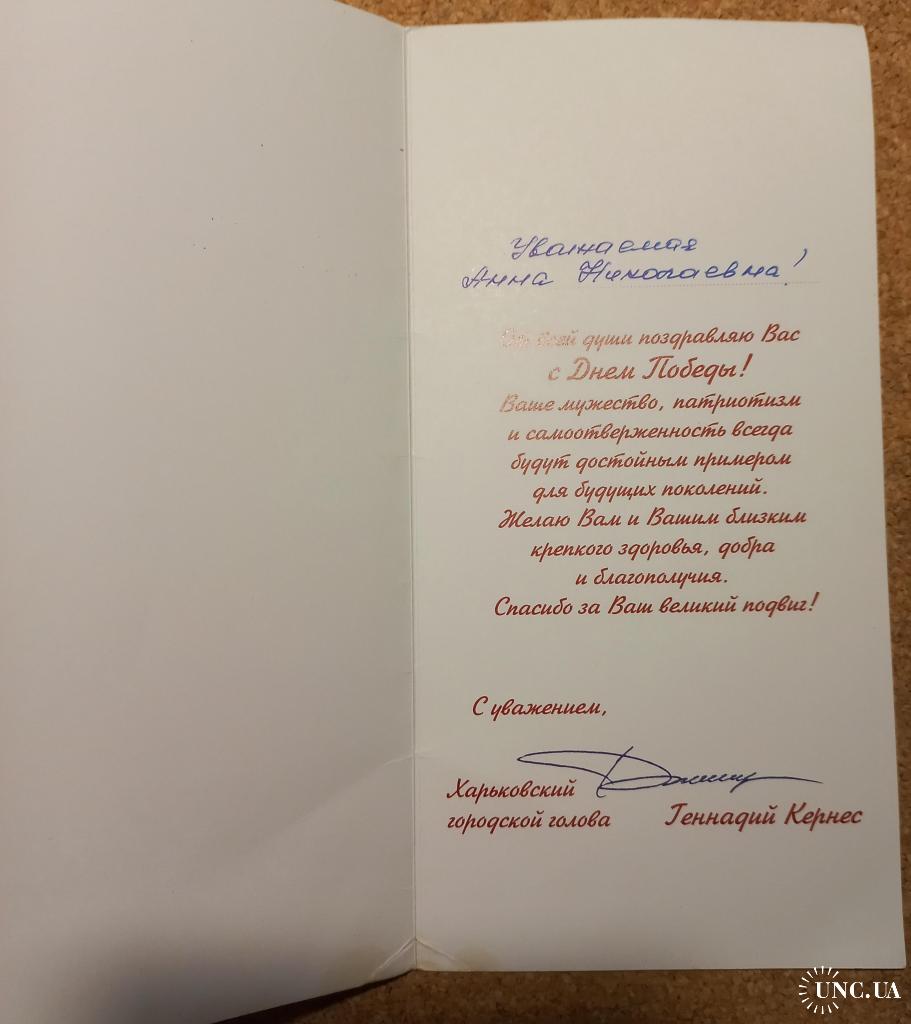 Уважаемая
Анна Николаевна!
От всей души поздравляю Вас
с Днем Победы!
Ваше мужество, патриотизм
и самоотверженность всегда
будут достойным примером
для будущих поколений.
Желаю Вам и Вашим близким
крепкого здоровья, добра
и благополучия.
Спасибо за Ваш великий подвиг!
С уважением,
Харьковский
городской голова
Геннадий Кернес
UNC.UA